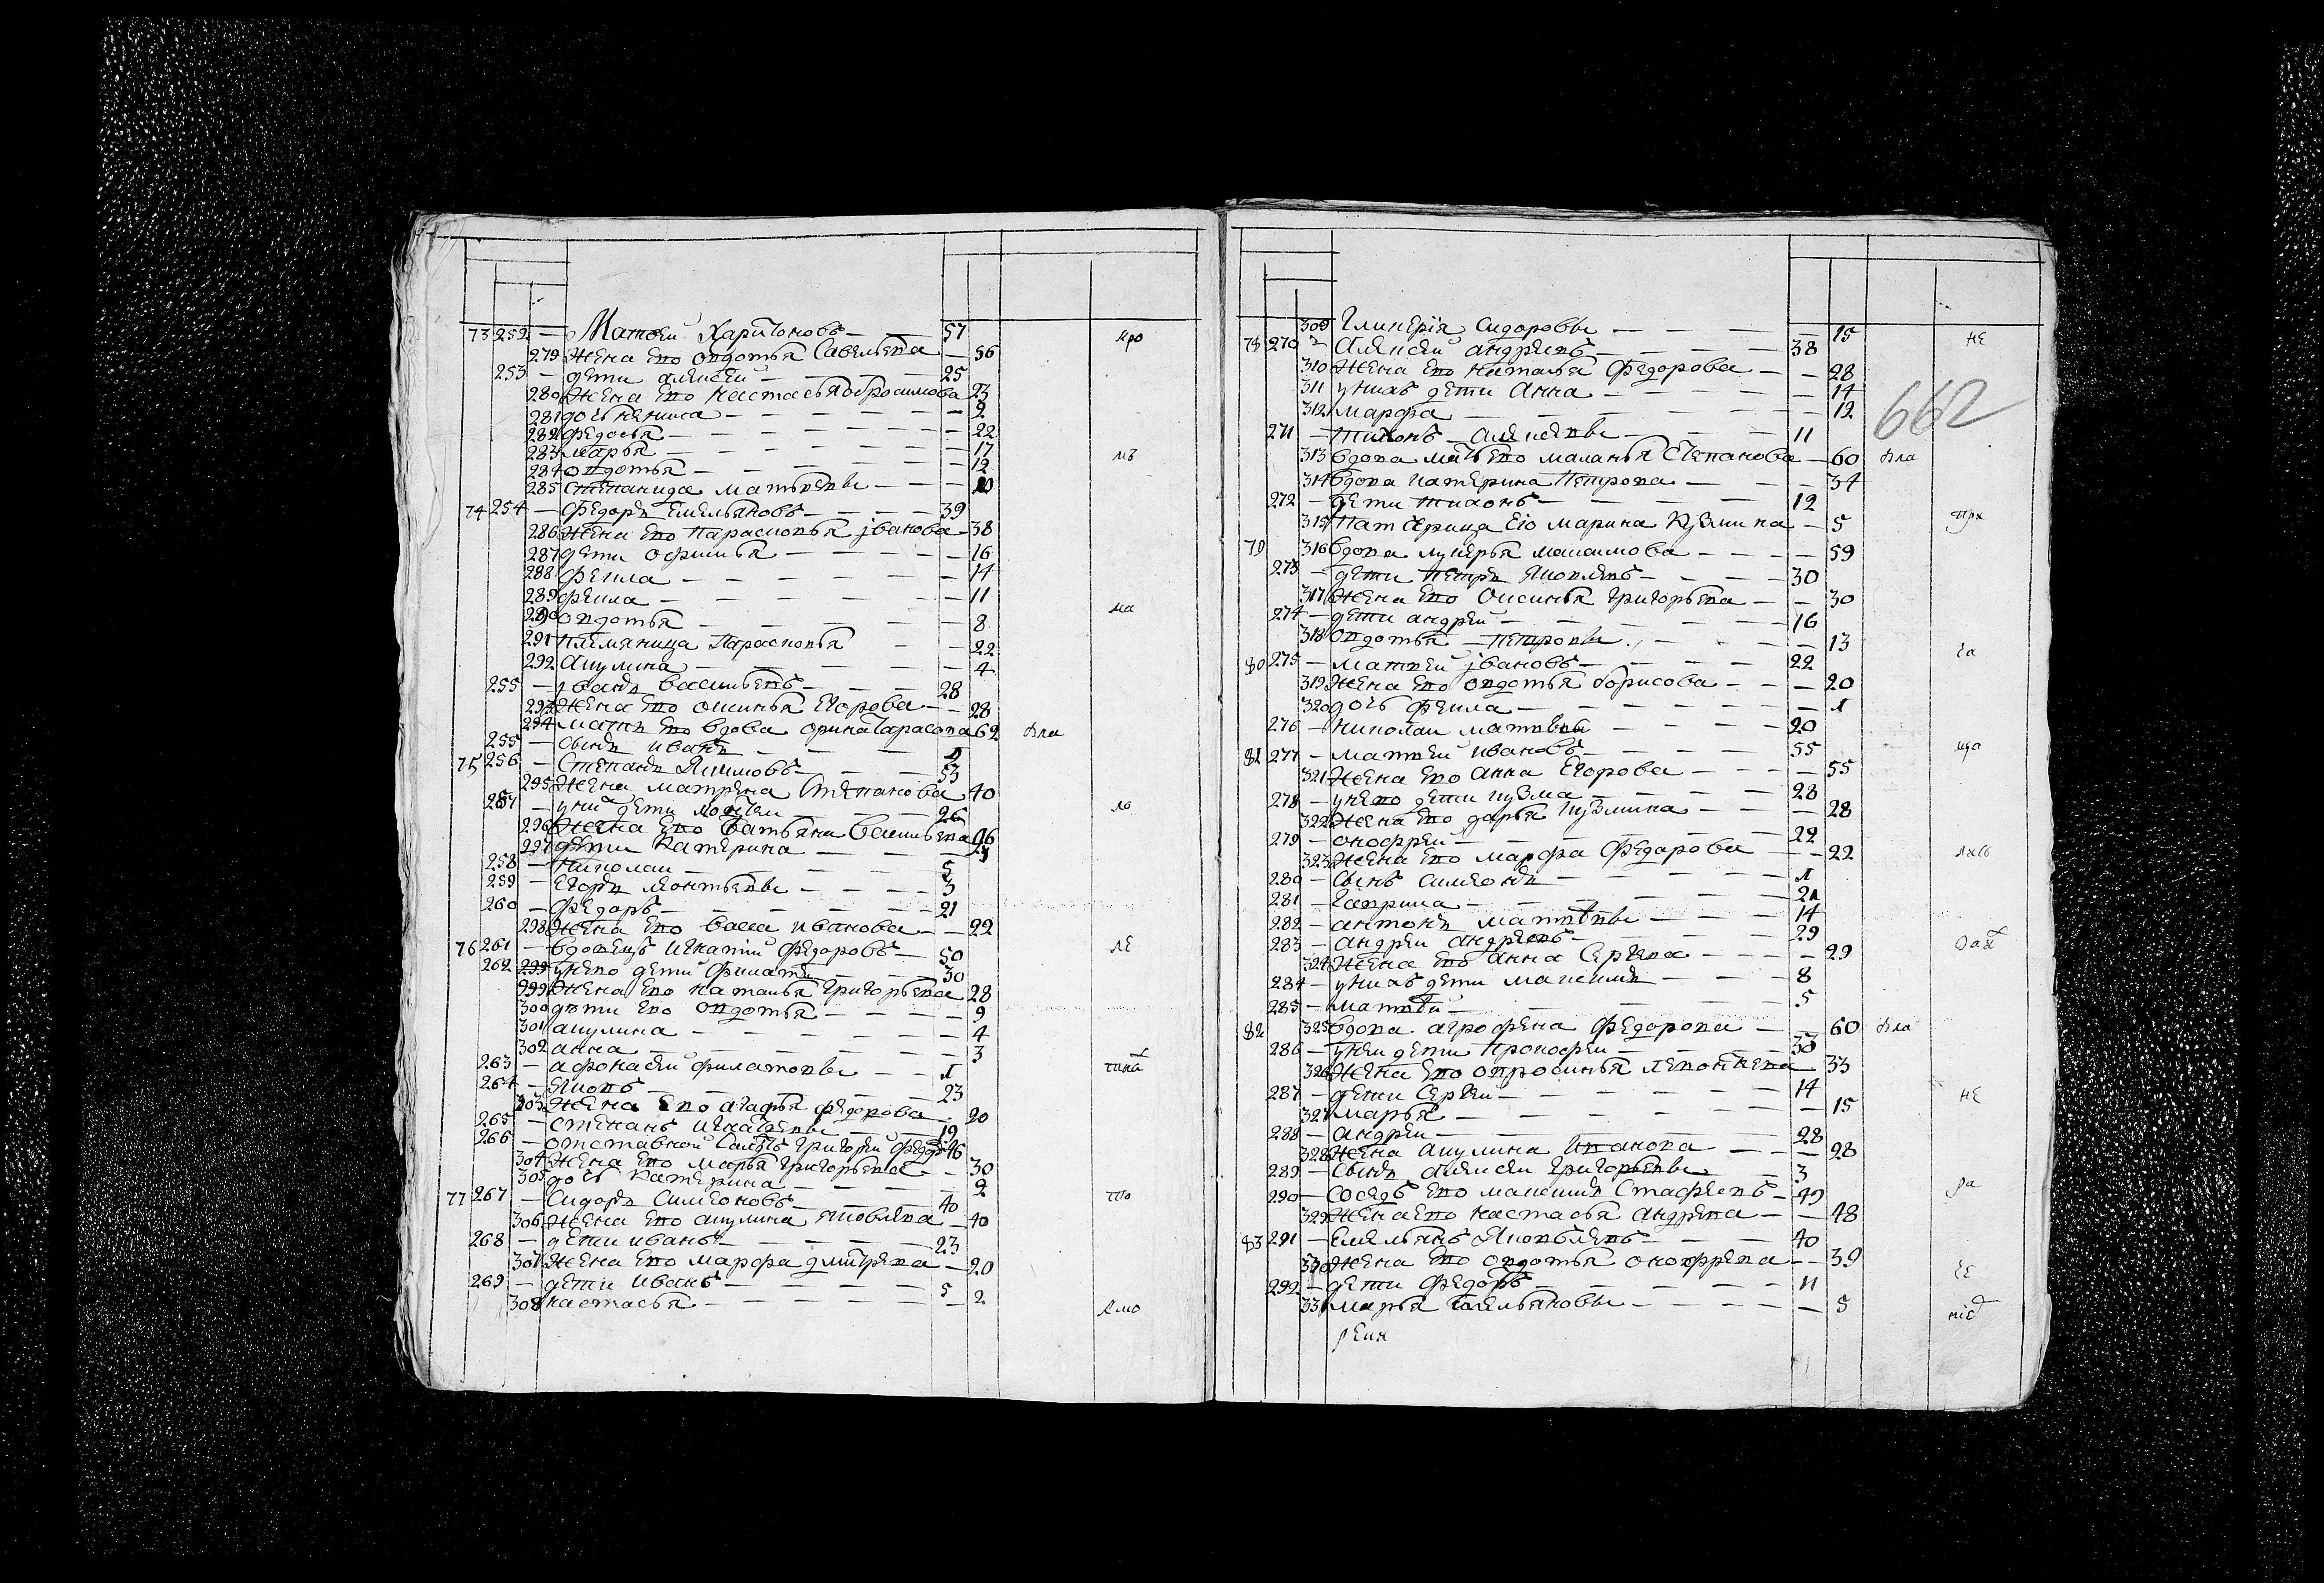 73 252 — Матвей Харитоновъ — 57 кро
279 Жена Ево овдотья Савельева — 56
253 — дети алексей — 25
280 Жена Ево Настасья обросимова 23
281 дочь 2
282 Федосья — 22
283 марья — 17
284 овдотья — 12 мъ
285 степанида матвеевы — 10
74 254 — Федоръ Емельяновъ — 39
286 Жена Ево Парасковья јванова — 38
287 дети офимья — 16
288 фекла — 14
289 фекла — 11
290 овдотья — 8 ма
291 племяница Парасковья — 22
292 акулина — 4
255 — јванъ васильевъ — 28
293 Жена Ево оксинья Егорова — 28
294 мать Ево вдова орина Тарасова 62 яла
255 — сынъ иванъ
75 256 — Степанъ Якимовъ — 53
295 Жена матрена Степанова 40
257 — у них дети 26 ло
296 Жена Ево Татьяна васильева 26
297 дети Катерина
258 — Николаи — 5
259 — Егоръ леонтьевы — 3
260 — Федоръ — 21
298 Жена Ево васа иванова — 22
76 261 — вдовецъ игнатий федоровъ — 50 ле
262 299 у нево дети филатъ — 30
299 Жена Ево наталья григорьева 28
300 дети Ево овдотья — 9
301 акулина — 4
302 анна — 3
263 — афонасей филатовы — 1
264 — Яковъ — 23
303 Жена Ево агафья федорова 20
265 — степанъ игнатьевы — 19
266 — отставной григорей федор 46
304 Жена Ево марья григорьева — 30
305 дочь Катерина — 2
77 267 — Сидоръ Симеоновъ — 40 то
306 Жена Ево акулина яковлева — 40
268 — дети иванъ — 23
307 Жена Ево марфа дмитрева — 20
269 — дети иванъ — 5
308 настасья — 2
ямо
309 Гликерия Сидоровы — 15
78 270 — Алексей андреевъ — 38 не
310 Жена Ево наталья Федорова — 28
662
311 у нихъ дети Анна — 14
312 марфа — 12
271 — тихонъ алексеевы — 11
313 вдова мать Ево маланья Степанова — 60 яла
314 вдова катерина Петрова — 34
272 — дети тихонъ — 12
315 Патчерица Его марина Кузмина — 5 прх
79 316 вдова лукерья максимова — 59
273 — дети петръ яковлевъ — 30
317 Жена Ево Оксинья Григорьева — 30
274 — дети андрей — 16
318 овдотья петровы — 13
80 275 — матвей јвановъ — 22 га
319 Жена Ево овдотья борисова — 20
320 дочь фекла — 1
276 — николаи матвеевъ — 20
81 277 — матвей ивановъ — 55
321 Жена Ево Анна Егорова — 55
278 — у нево дети кузма — 28
322 Жена Ево дарья кузмина — 28
279 — онофрей — 22
323 Жена Ево марфа Федорова — 22
280 — сынъ симеонъ — 1
281 — гаврила — 21
282 — антонъ матвеевы — 14
283 — андреи андреевъ — 29
324 Жена Ево анна Сергева — 29
284 — у нихъ дети максимъ — 8
285 — матвей — 5
82 325 вдова агрофена федорова — 60 яла
286 — у неи дети Прокофеи — 33
326 Жена Ево опросинья левонтева 33
287 — дети Сергей — 14 не
327 марья — 15
288 — андреи — 28
328 Жена акулина иванова — 28
289 — сынъ алексеи григорьевы — 3
290 — соседъ Ево максимъ Стафеевъ — 49 ра
329 Жена Ево настасья андреева — 48
83 291 — Емельянъ Яковлевъ — 40
330 Жена Ево овдотья онофрева — 39
292 — дети Федоръ — 11 се
331 марья Емельяновы — 5